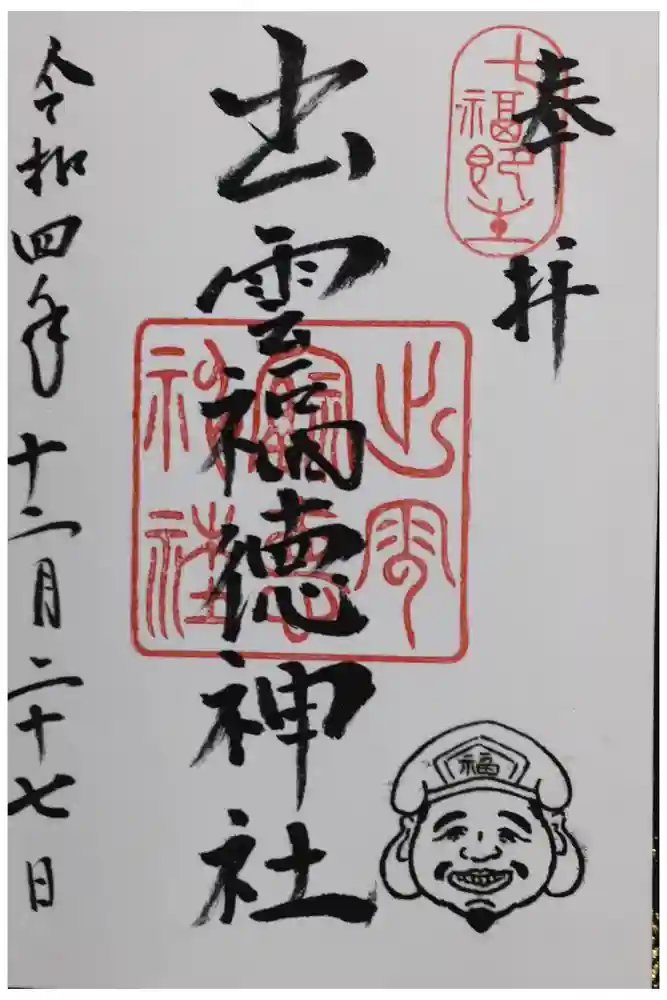 奉拝
七福即生
出雲福徳神社
出雲福徳神社
福
令和四年十二月二十七日